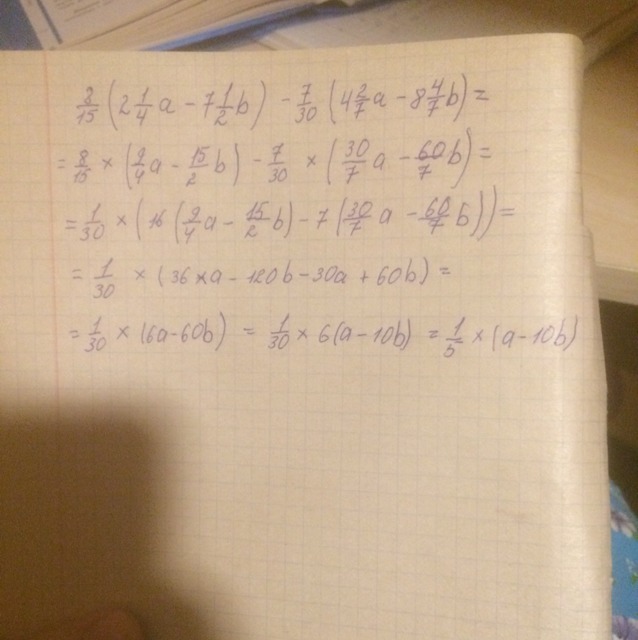 8/15 (2 1/4 a - 7 1/2 b) - 7/30 (4 2/7 a - 8 4/7 b) =
= 8/15 × (9/4 a - 15/2 b) - 7/30 × (30/7 a - 60/7 b) =
= 1/30 × (16 (9/4 a - 15/2 b) - 7 (30/7 a - 60/7 b)) =
= 1/30 × (36×a - 120b - 30a + 60b) =
= 1/30 × (6a - 60b) = 1/30 × 6(a - 10b) = 1/5 × (a - 10b)